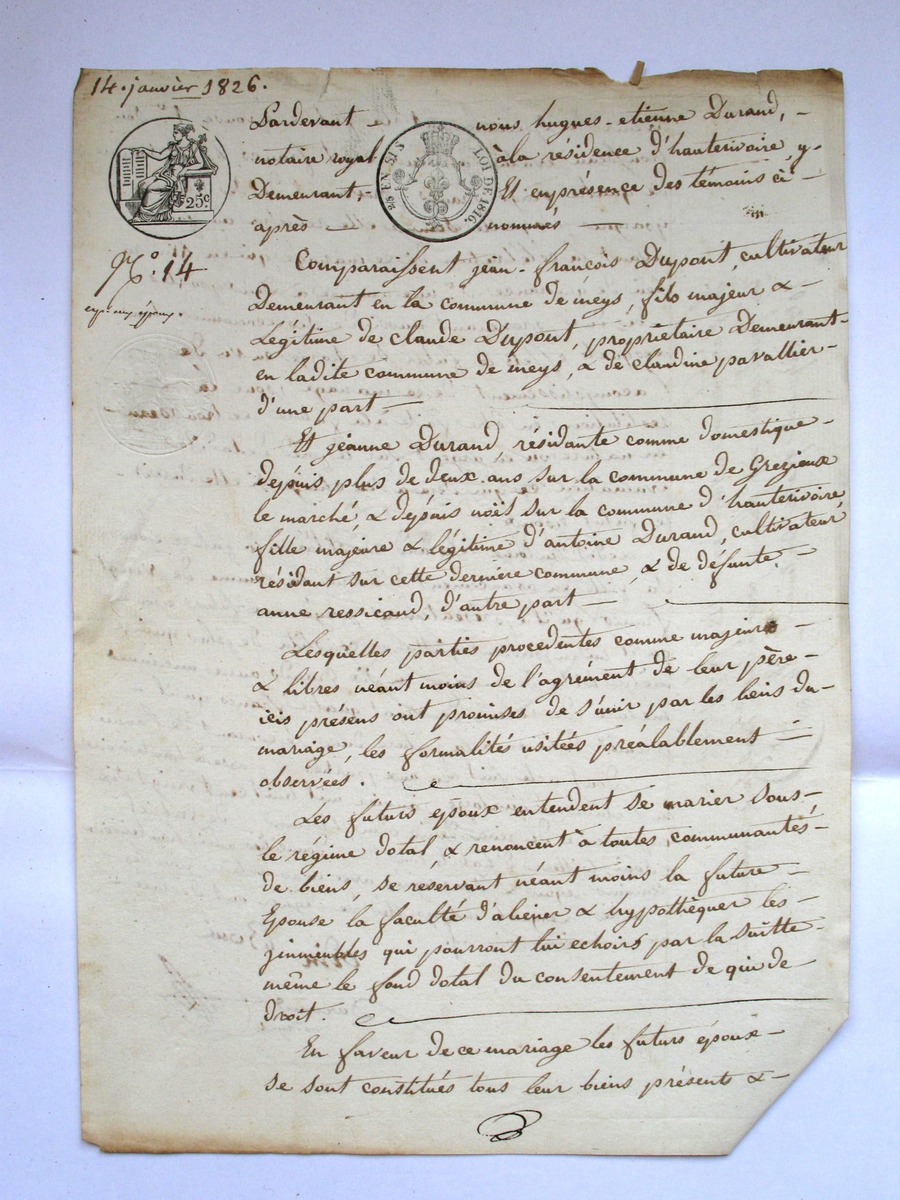 14. janvier 1826.
Pardevant nous hugues-etienne Durand,
notaire royal à la résidence d'hauterivoire, y
Demeurant, Et en présence des témoins ci
après nommés
25 c
EN SUS
LOI DE 1816.
N° 14
Comparaissent jean-françois Dupont, cultivateur
Demeurant en la commune de meys, fils majeur &
Légitime de claude Dupont, propriétaire Demeurant
en ladite commune de meys, & de claudine pavallier
d'une part
Et jeanne Durand, résidante comme domestique
depuis plus de deux ans sur la commune de Grezieux
le marché, & depuis noël sur la commune d'hauterivoire,
fille majeure & légitime d'antoine Durand, cultivateur,
résidant sur cette dernière commune, & de défunte
anne ressicaud, d'autre part
Lesquelles parties procedentes comme majeurs
& libres néant moins de l'agrément de leur père
icis présens ont promises de s'unir par les liens du
mariage, les formalités usitées préalablement
observées.
Les futurs epoux entendent se marier sous
le régime dotal, & renoncent à toutes communautés
de biens, se réservant néant moins la future
Epouse la faculté d'aliéner & hypothèquer les
jmmeubles qui pourront lui echoirs par la suitte
même le fond dotal du consentement de qui de
droit.
En faveur de ce mariage les futurs époux
se sont constitués tous leur biens présents &